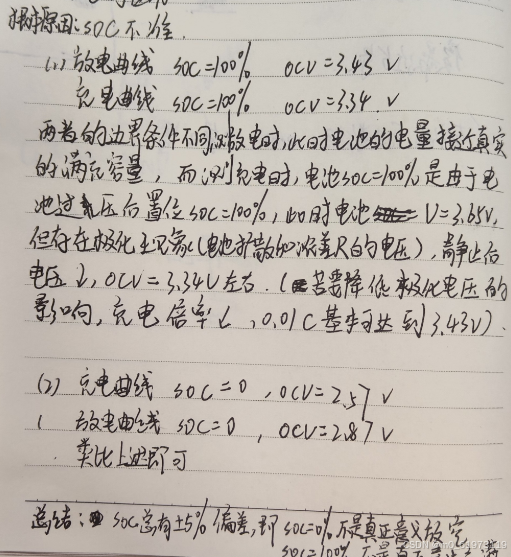 根本原因:SOC不准.
(1) 放电曲线 SOC=100% OCV=3.43 V
充电曲线 SOC=100% OCV=3.34 V
两者的边界条件不同,测放电时,此时电池的电量接近真实
的满充容量,而测充电时,电池SOC=100%是由于电
池过充压后置位SOC=100%,此时电池 V=3.65V,
但存在极化现象(电池扩散和浓差 的电压),静止后
电压↓,OCV=3.34V左右.(若要降低极化电压的
影响,充电倍率↓,0.01C基本可达到3.43V).
(2) 充电曲线 SOC=0 ,OCV=2.57 V
( 放电曲线 SOC=0 ,OCV=2.87 V
类比上述即可
总结: SOC总有±5%偏差,即SOC=0%不是真正意义放空
SOC=100%